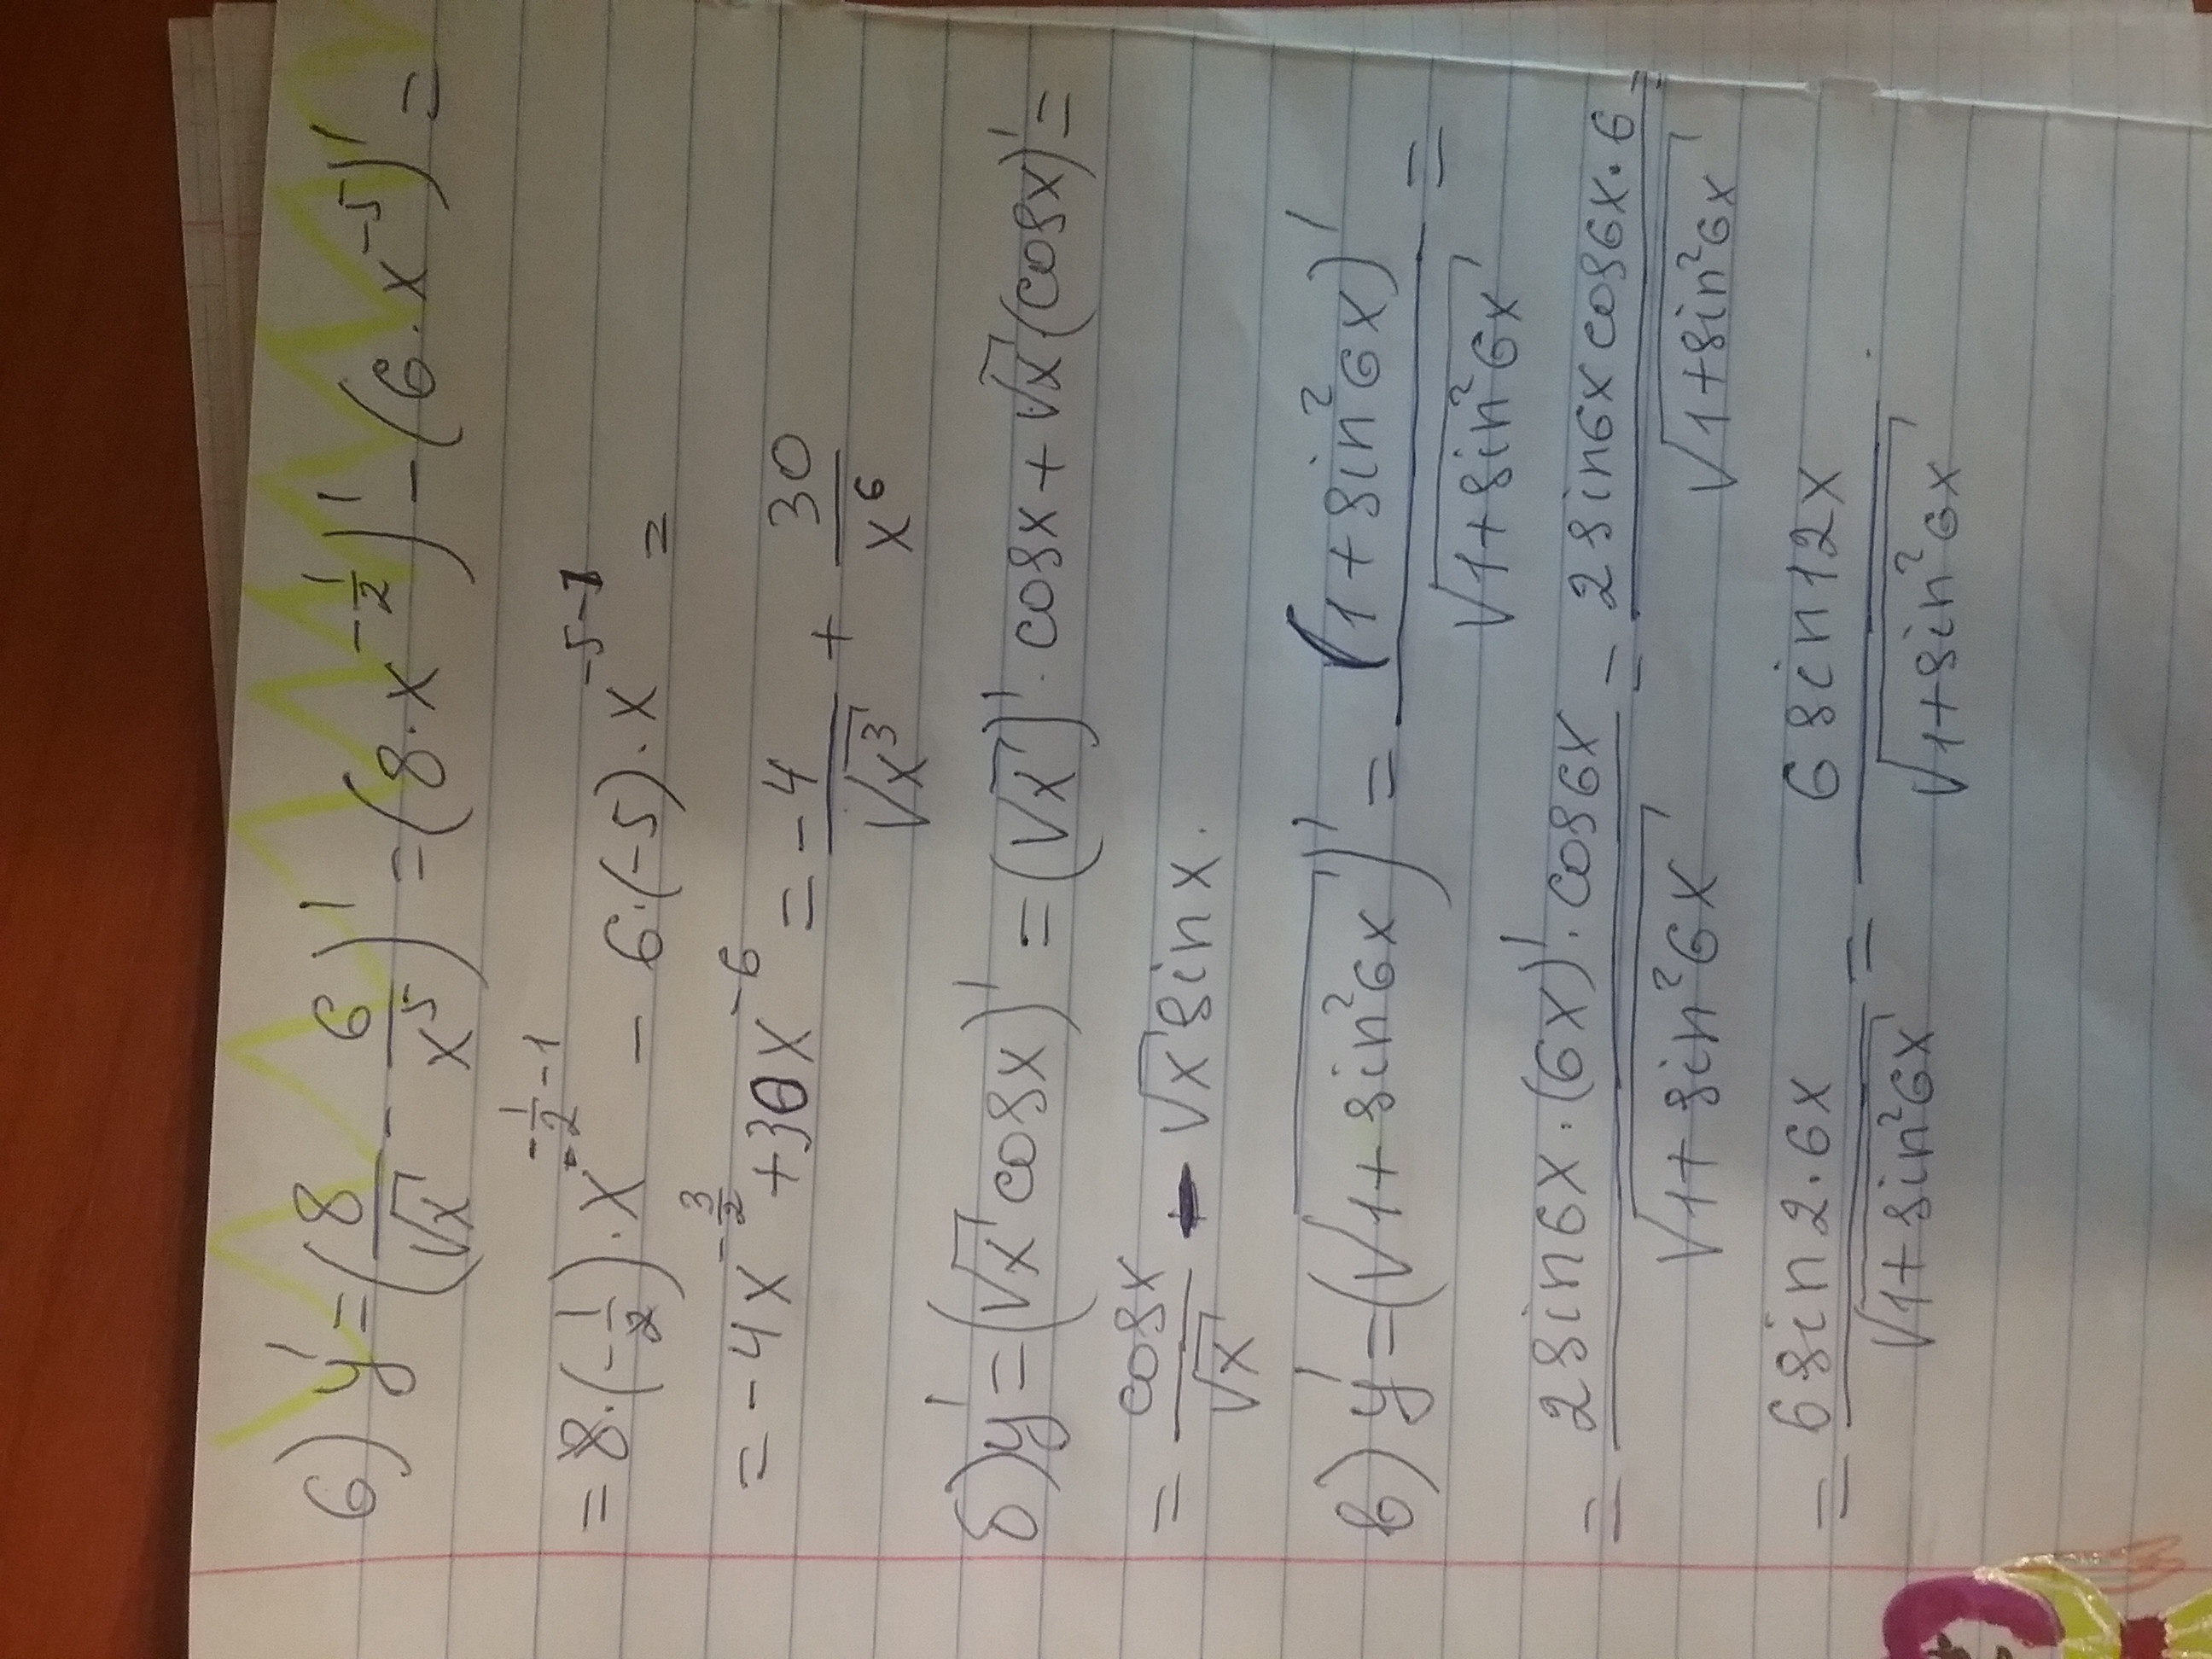 6) y' = (8/√x - 6/x⁵)' = (8·x^(-1/2))' - (6·x⁻⁵)' =
= 8·(-1/2)·x^(-1/2-1) - 6·(-5)·x^(-5-1) =
= -4x^(-3/2) + 30x⁻⁶ = -4/√x³ + 30/x⁶
б) y' = (√x cosx)' = (√x)'·cosx + √x(cosx)' =
= cosx/√x - √x sinx.
в) y' = (√(1+sin²6x))' = (1+sin²6x)'/√(1+sin²6x) =
= 2sin6x·(6x)'·cos6x/√(1+sin²6x) = 2sin6x cos6x·6/√(1+sin²6x) =
= 6sin2·6x/√(1+sin²6x) = 6sin12x/√(1+sin²6x).